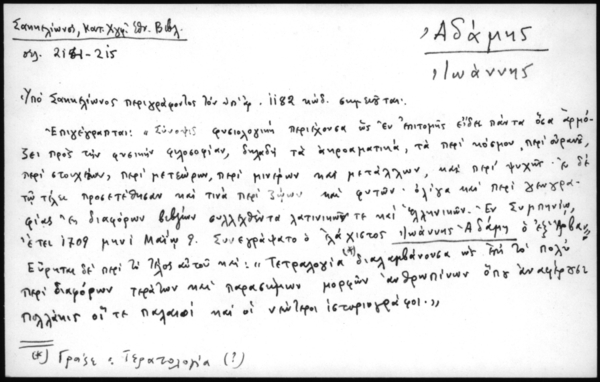 Σακκελίωνος, Κατ. Χγφ. Ἐθν. Βιβλ.
σελ. 214-215
Ἀδάμης
Ἰωάννης
Ὑπό Σακκελίωνος περιγράφοντος τόν ὑπ' ἀρ. 1182 κώδ. σημειοῦται:
Ἐπιγέγραπται: "Σύνοψις φυσιολογική περιέχουσα ὡς ἐν ἐπιτομῆς εἴδει πάντα ὅσα ἁρμό-
ζει πρός τήν φυσικήν φιλοσοφίαν, δηλαδή τά ἀκροαματικά, τά περί κόσμου, περί οὐρανοῦ,
περί στοιχείων, περί μετεώρων, περί μινερῶν καί μετάλλων, καί περί ψυχῆς· ἐν δέ
τῷ τέλει προσετέθησαν καί τινα περί ζῴων καί φυτῶν· ὀλίγα καί περί γεωγρα-
φίας ἐκ διαφόρων βιβλίων συλλεχθέντα λατινικῶν τε καί ἑλληνικῶν. Ἐν Συμπηνίῳ,
ἔτει 1709 μηνί Μαΐῳ 9. Συνεγράψατο ὁ ἐλάχιστος Ἰωάννης Ἀδάμη ὁ ἐξ
Εὕρηται δέ περί τό τέλος αὐτοῦ καί: "Τετραλογία (*) διαλαμβάνουσα ὡς ἐπί τό πολύ
περί διαφόρων τεράτων καί παρασήμων μορφῶν ἀνθρωπίνων ὅπου ἀναφέρουσι
πολλάκις οἵ τε παλαιοί καί οἱ νεώτεροι ἱστοριογράφοι."
(*) Γράφε: Τερατολογία (!)